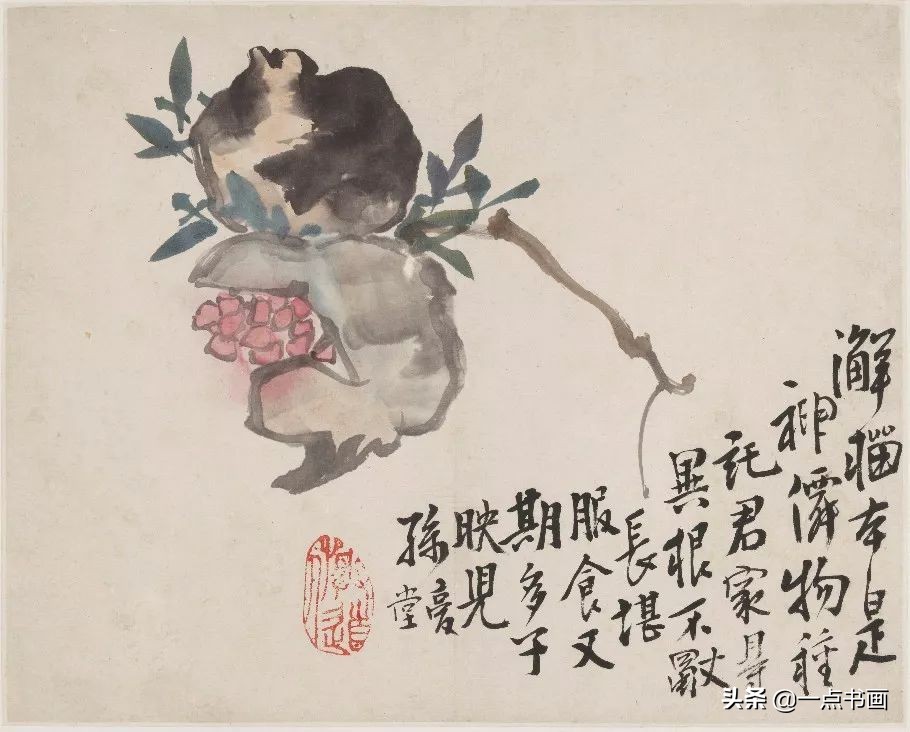 澥橊本是
神僊物種
託君家㝵
異根不獨
長堪
服食又
期多子
映兒
孫 堂
头条 @一点书画